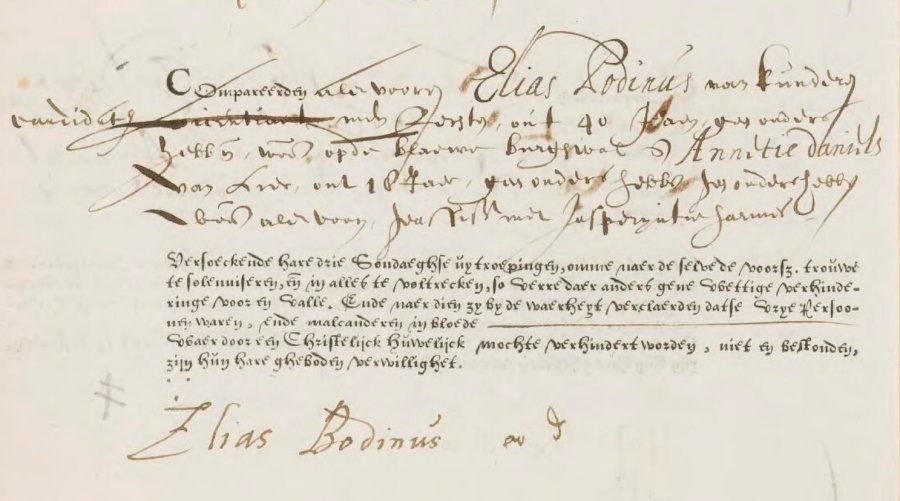 Compareerden als vooren Elias Bodinus van
candidat inden Rechten, out 40 Jaer, geen ouders
hebbende, woont opde blaewe burghwal & Annetie daniels
van, out 18 Jaer, geen ouders hebbende
woont als vooren, geassisteert met Jasperijntie harmens
Versoeckende hare drie Sondaeghse uytroepingen, omme naer de selve de voorsz. trouwe
te solenniseren, eñ in alles te voltrecken, so verre daer anders gene wettige verhinde-
ringe voor en valle. Ende naer dien zy by de waerheyt verclaerden datse vrye Persoo-
nen waren, ende malcanderen in bloede
waer door een Christelijck huwelijck mochte verhindert worden, niet en bestonden,
zijn hun hare gheboden verwillighet.
Elias Bodinus